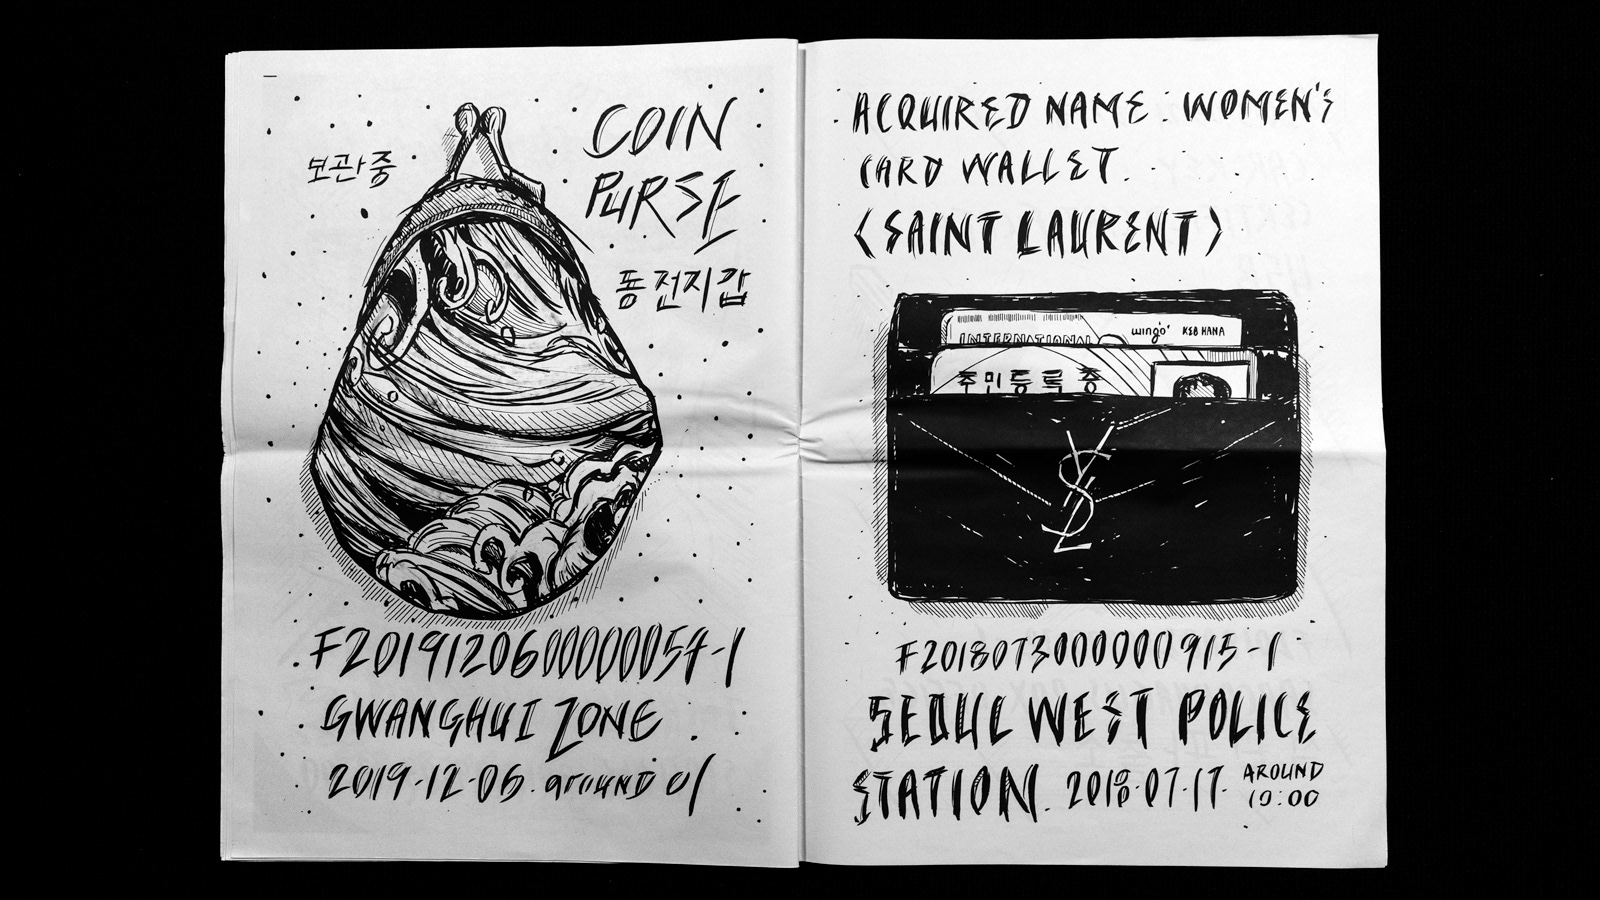 보관중
COIN
PURSE
동전지갑
F2019120600000054-1
GWANGHUI ZONE
2019-12-06. around 01
ACQUIRED NAME : WOMEN'S
CARD WALLET.
<SAINT LAURENT>
INTERNATIONAL wingo' KEB HANA
주민등록증
YSL
F2018073000000915-1
SEOUL WEST POLICE
STATION. 2018-07-17. AROUND
10:00